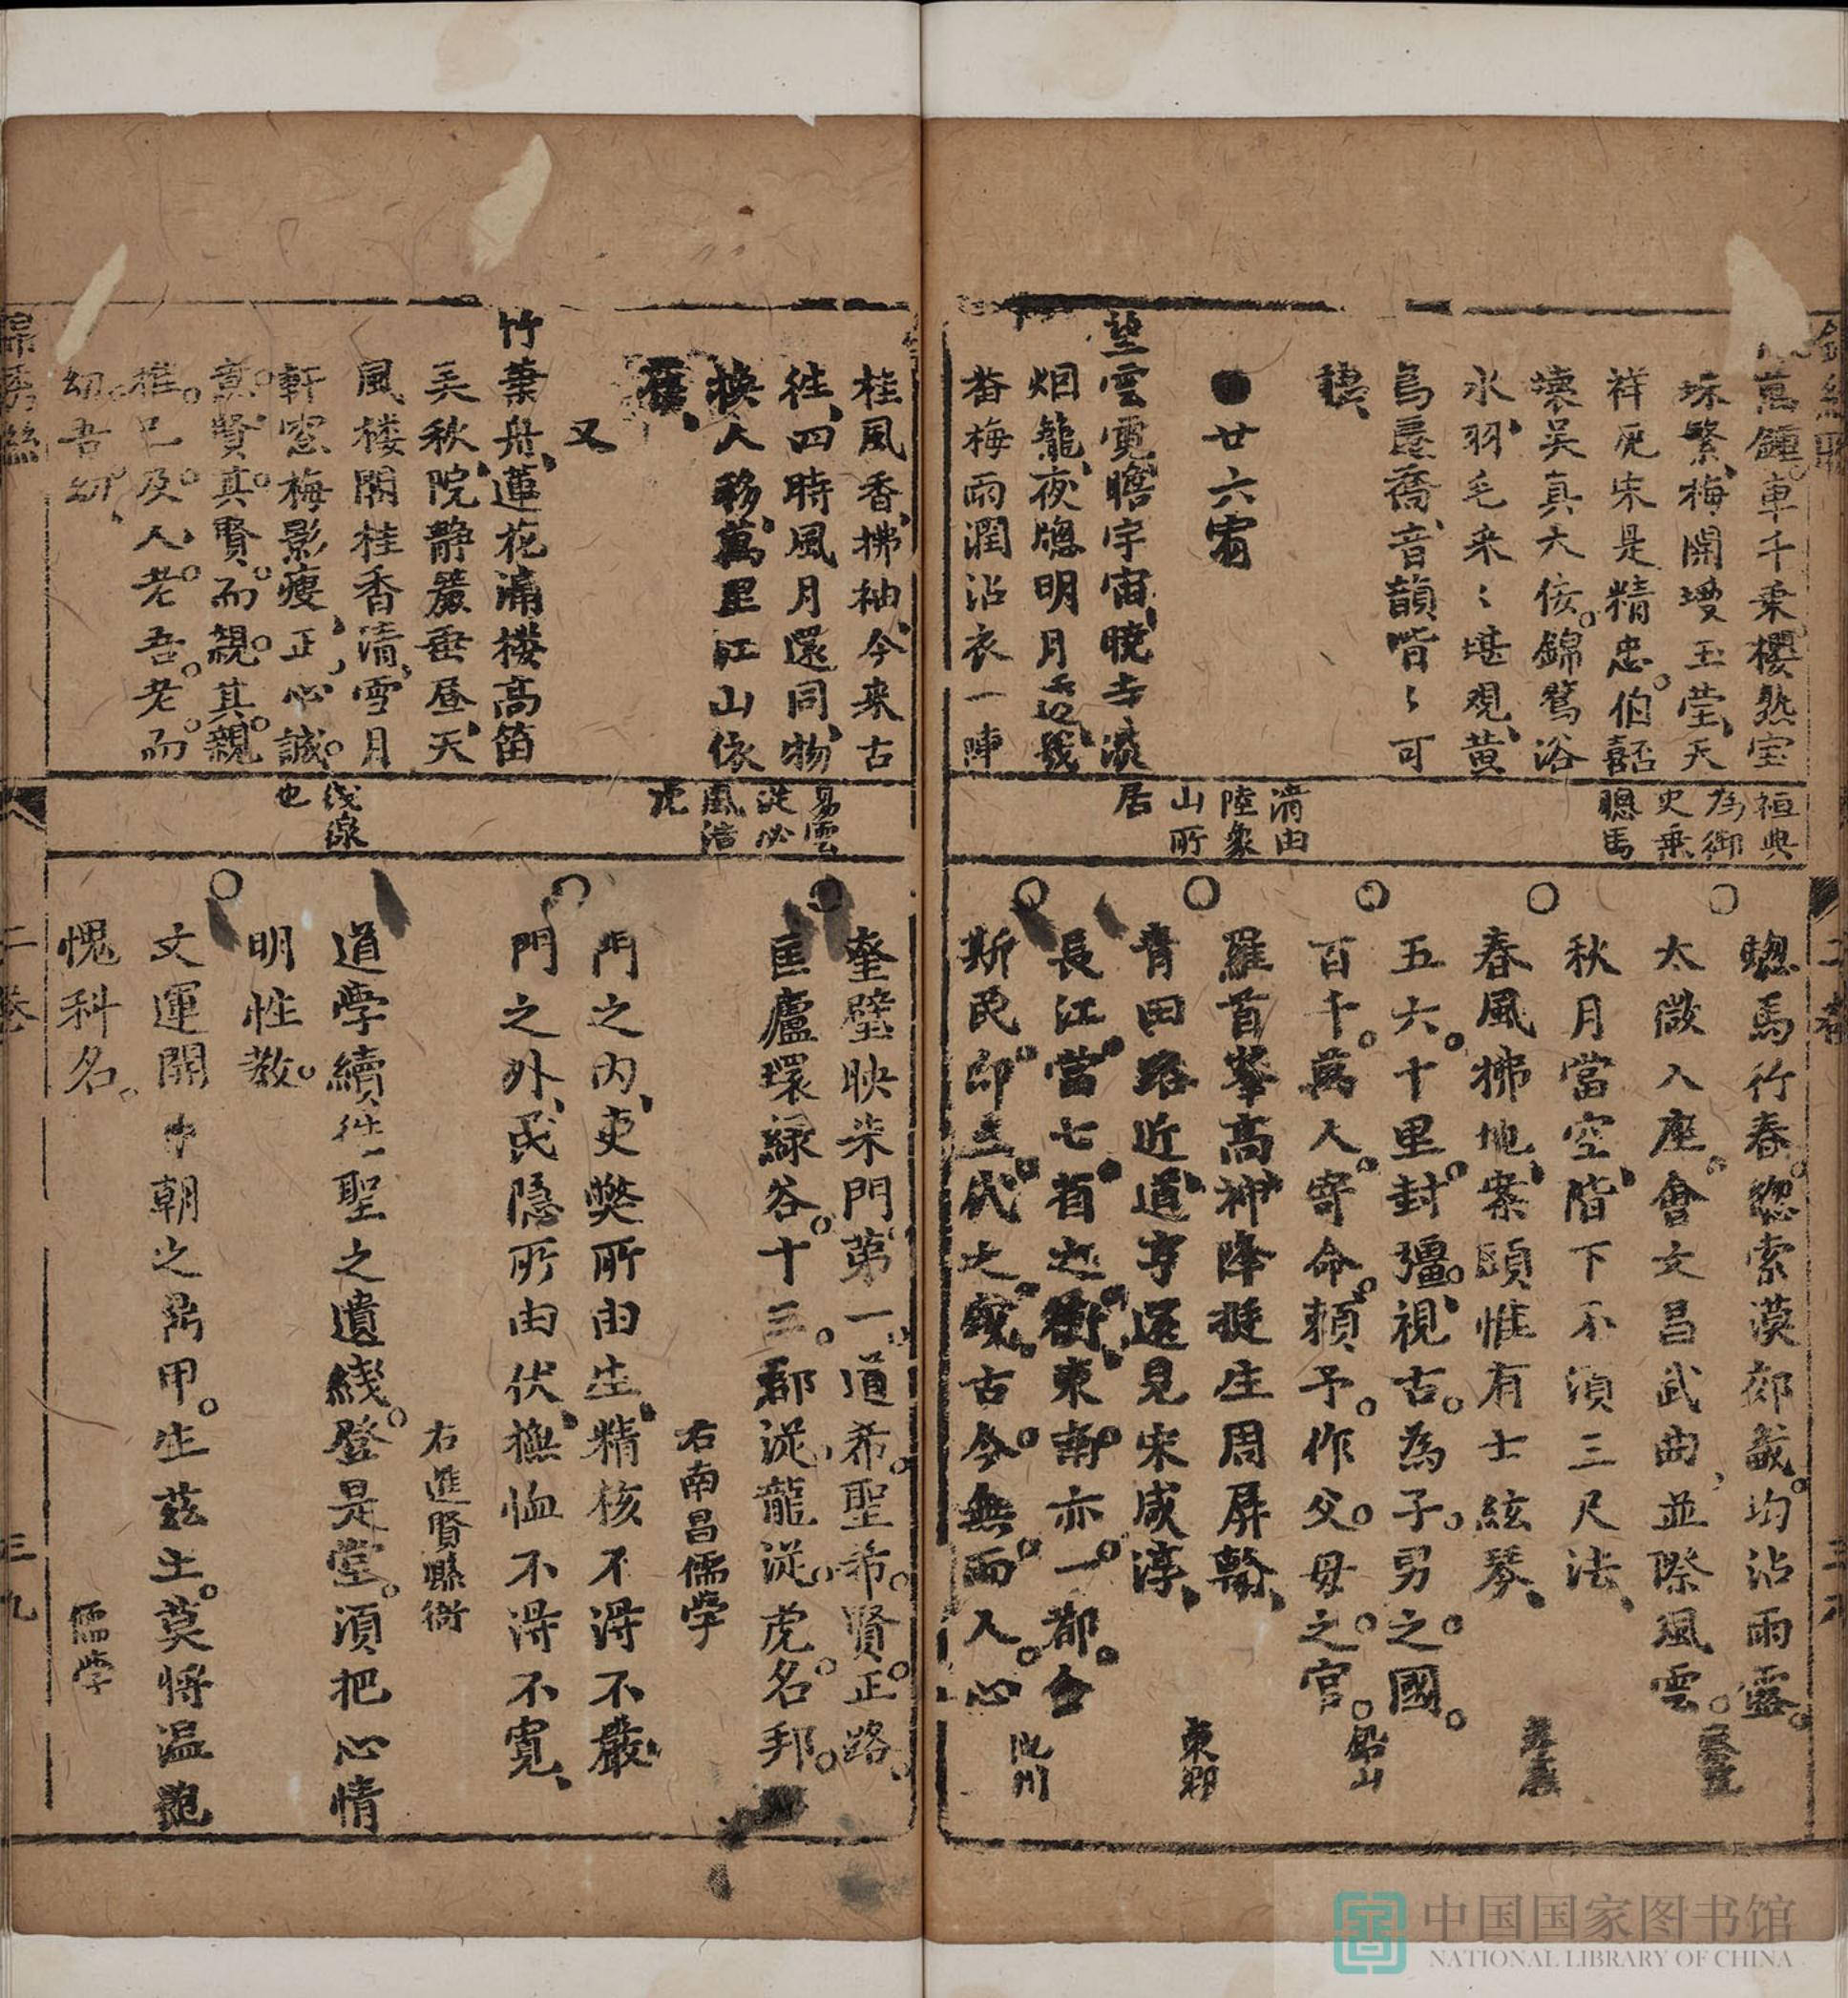 萬鍾車千乗櫻熟宝
珠繁梅開瓊玉瑩天
祥死宋是精忠伯嚭
壊吴真大侫錦鴛浴
水羽毛来〻堪观黄
鳥迁喬音韻喈〻可
聽
●廿六宥
望雲霓瞻宇宙曉寺濃
烟籠夜牕明月透幾
番梅雨潤沾衣一陣
桓典
為御
史乗
驄馬
濟由
陸象
山所
居
驄馬行春惣索漠郊畿均沾雨露
太微入座會文昌武曲並際風雲
秋月當空階下不須三尺法
春風拂地案頭惟有士絃琴
五六十里封彊視古為子男之國
百千萬人寄命頼予作父母之官
鉛山
羅首峯高神降挺生周屏翰
青田路近道亨還見宋咸淳
東鄉
長江當七省之衝東南亦一都会
斯民即三代之古今無兩人心
桂風香拂袖今来古
徃四時風月還同物
换人移萬里江山依
舊
又
竹葉舟蓮花漏楼高笛
美秋院静嚴垂昼天
風楼開桂香清雪月
軒窓梅影瘦正心誠
意賢真賢而親其親
推己及人老吾老而
幼吾幼
易雲
從必
風浩
虎
线線
也
奎璧映朱門第一道希聖希賢正路
匡廬環緑谷十三郡従龍従虎名邦
右南昌儒学
門之内吏獘所由生精核不淂不嚴
門之外民隠所由伏撫恤不淂不寛
右進賢縣衙
道學續徃聖之遺綫登是堂須把心情
明性教
文運開中朝之甲生茲土莫将温飽
愧科名
儒学
二卷
三九